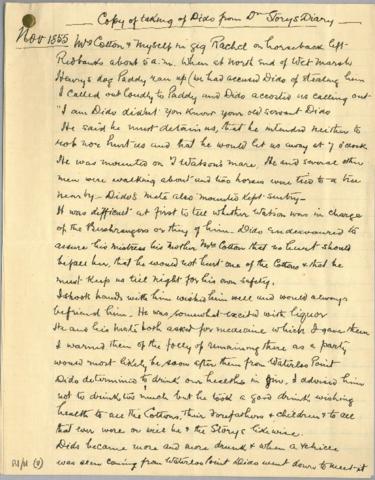 Copy of taking of Dido from Dr Story's Diary
Nov 1855 Mrs Cotton & Myself in gig Rachel on horseback left
Redbanks about 5 a.m. when at North End of Wet Marsh
Henry's dog Paddy ran up (we had accused Dido of stealing him
I called out loudly to Paddy and Dido accosted us calling out
"I am Dido didn't you know your old servant Dido
He said he must detain us, that he intended neither to
rob nor hurt us and that he would let us away at 7 o'clock
He was mounted on J Watson's mare. He and several other
men were walking about and two horses were tied to a tree
nearby – Dido's mate also mounted kept sentry –
It was difficult at first to tell whether Watson was in charge
of the Bushrangers or they of him. Dido endeavoured to
assure his mistress his mother Mrs Cotton that no hurt should
befall her, that he would not hurt one of the Cottons & that he
must keep us till night for his own safety.
I shook hands with him wished him well and would always
befriend him. He was somewhat excited with liquor
He and his mate both asked for medicine which I gave them
I warned them of the folly of remaining there as a party
would most likely be soon after them from Waterloo Point
Dido determined to drink our healths in Gin, I advised him
not to drink too much but he took a good drink wishing
health to all the Cottons, their forefathers & children & to all
that ever were or will be & the Storys likewise.
Dido became more and more drunk & when a vehicle
was seen coming from Waterloo Point Dido went down to meet it